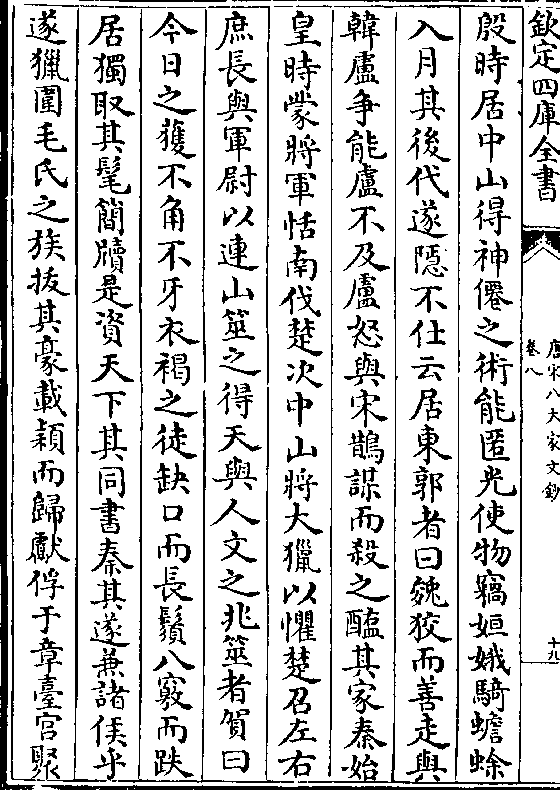 欽定四庫全書
唐宋八大家文鈔
卷八
十九
殷時居中山得神僊之術能匿光使物竊姮娥騎蟾蜍
入月其後代遂隱不仕云居東郭者曰㕙狡而善走與
韓盧爭能盧不及盧怒與宋鵲謀而殺之醢其家秦始
皇時蒙將軍恬南伐楚次中山將大獵以懼楚召左右
庶長與軍尉以連山筮之得天與人文之兆筮者賀曰
今日之獲不角不牙衣褐之徒缺口而長鬚八竅而趺
居獨取其髦簡牘是資天下其同書秦其遂兼諸侯乎
遂獵圍毛氏之族拔其豪載穎而歸獻俘于章臺宮聚